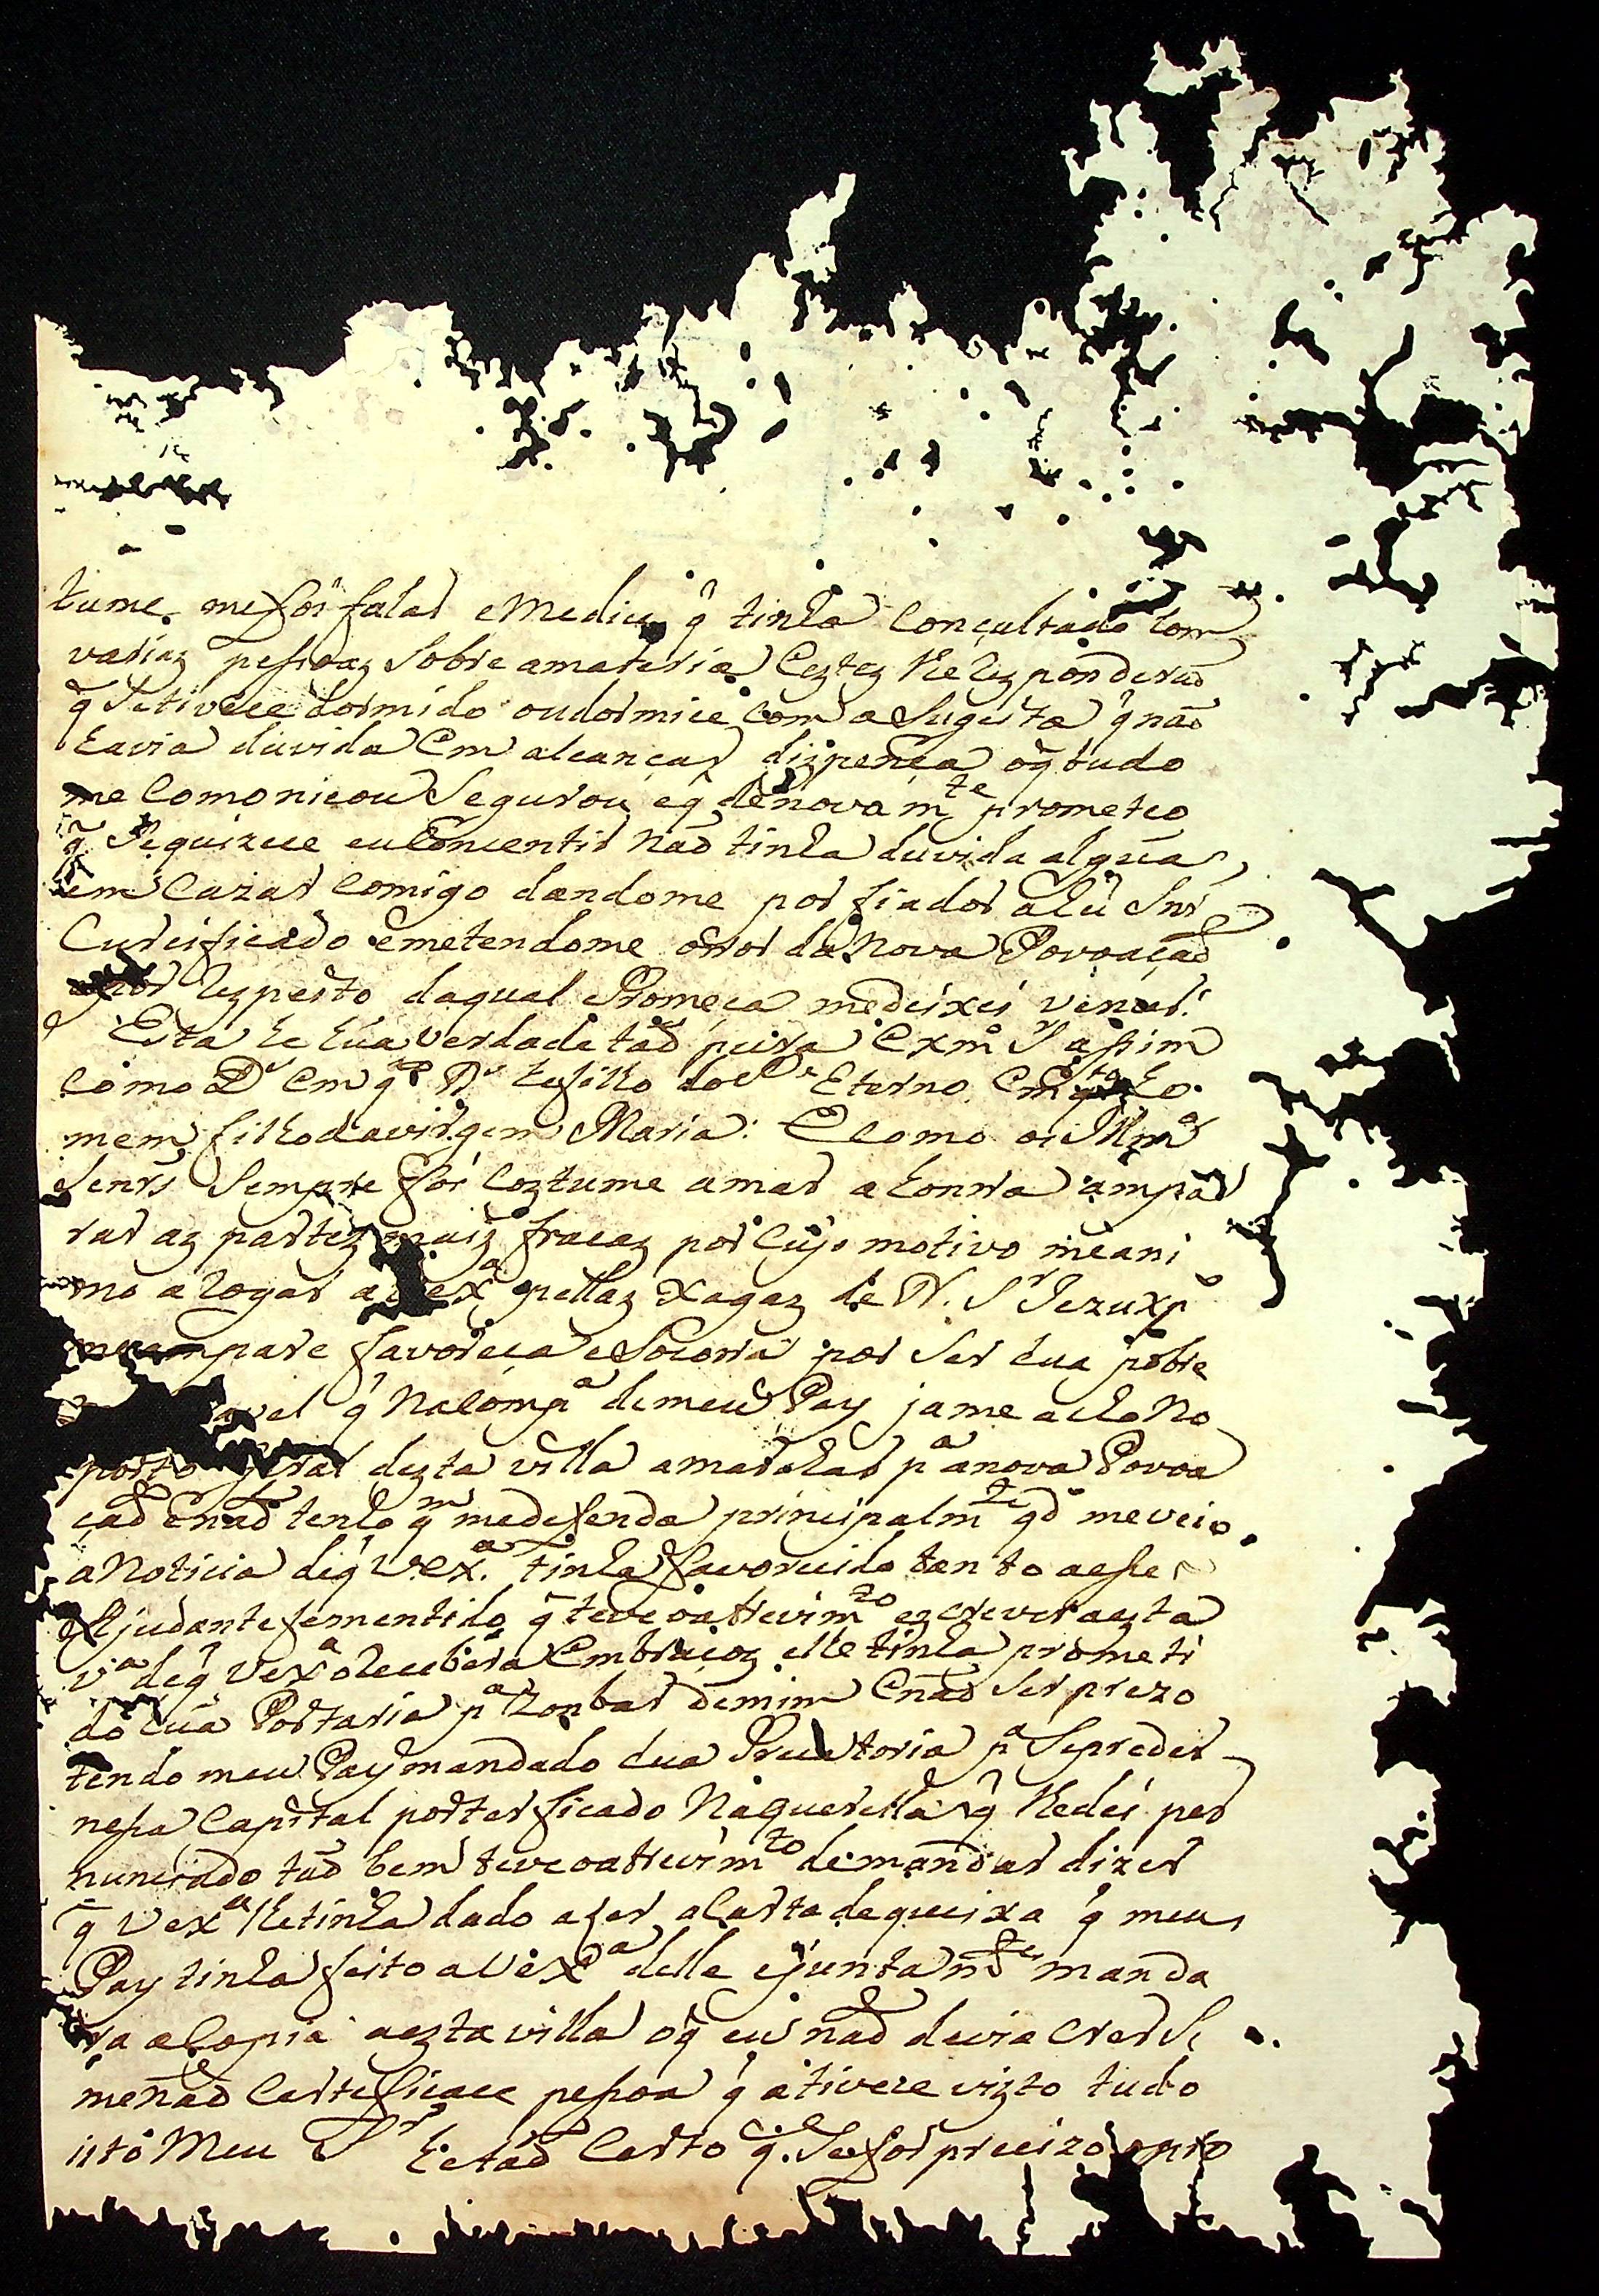 tume me foi falar e Medice q̃ tinha Conçultado Com
varias pessoas Sobre amateria E estes lhe Respondeŕaõ
q̃ Setivece dormido ou dormice com a Sugeita q̃ naõ
havia duvida Em alcançar dispença oq̃ tudo
me Comonicou Segurou eq̃ de nova m.te prometeo
q̃ Sequizece eu Concentir Naõ tinha duvida algũa
em Cazar Comigo dandome por fiador ahũ Snr
Curcificado emetendome orror da Nova Povoaçaõ
por Respeito daqual Promeça medeixei vencer.
Esta he hũa verdade taõ pura Exm.o S.r assim
Como D.s em q.to D.s he filho do P.e Eterno Em q.to ho
mem filho davirgem Maria: E Como os Ill.mos
Senrs Sempre foi Coztume amar a honrra ampa
rar as partes mais fracas por Cujo motivo meani
mo a Rogar a Vex.a pellas Xagas de N. S.r Jezu xp.o
meempare favoreça e Socorra por Ser hua pobre
avel q̃ Na Comp.a demeu Pay jame acho No
porto geral desta villa amarchar p.a anova Povoa
çaõ Enaõ tenho q.m medefenda principalm.te q.do meveio
aNoticia deq̃ Vex.a tinha favorecido tanto aesse
Ajudante fementido q̃ teve oatrevim.to ezcrever aezta
v.a deq̃ Vex.a oRecebera Embraços elle tinha prometi
do hũa Portaria p.a Zonbar demim Enaõ Ser prezo
tendo meu Pay mandado hua Precatoria p.a Sepreder
nessa Capital porter ficado Naquerella q̃ lhedei per
nunciado taõ bem teve oatrevim.to demandar dizer
q̃ Vex.a lhetinha dado aler aCarta dequeixa q̃ meu
Pay tinha feito aVex.a delle ejuntam.te manda
ra aCopia aezta villa oq̃ eu naõ devia crer Se
menaõ Certeficace pessoa q̃ ativece vizto tudo
isto Meu S.r hetaõ Certo q̃. Sefor precizo